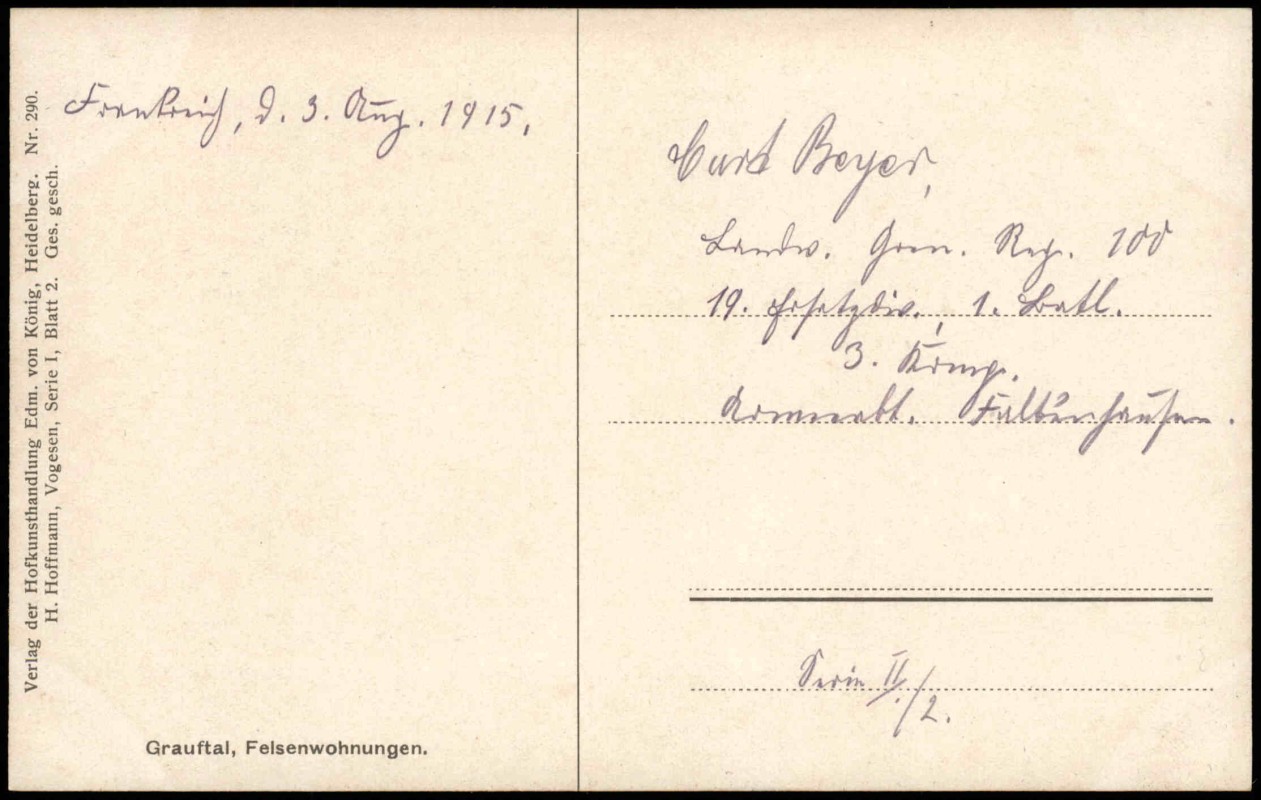 Verlag der Hofkunsthandlung Edm. von König, Heidelberg. Nr. 290.
H. Hoffmann, Vogesen, Serie I, Blatt 2. Ges. gesch.
Frankreich, d. 3. Aug. 1915.
Grauftal, Felsenwohnungen.
Curt Beyer,
Landw. Gren. Reg. 100
19. Ersatzdiv., 1. Batl.
3. Komp.
Armeeabt. Falkenhausen.
Serie II/2.